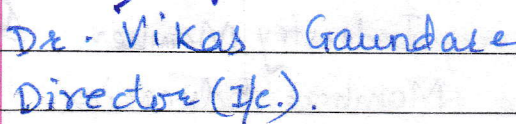 Dr. Vikas Gaundare
Director (I/c.).